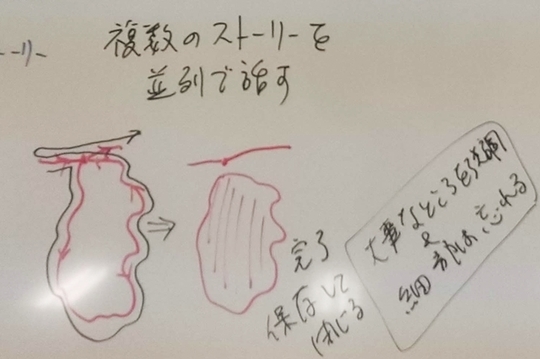 ーリー
複数のストーリーを
並列で話す
完了
保存して
閉じる
大事なところを強調
細部は忘れる